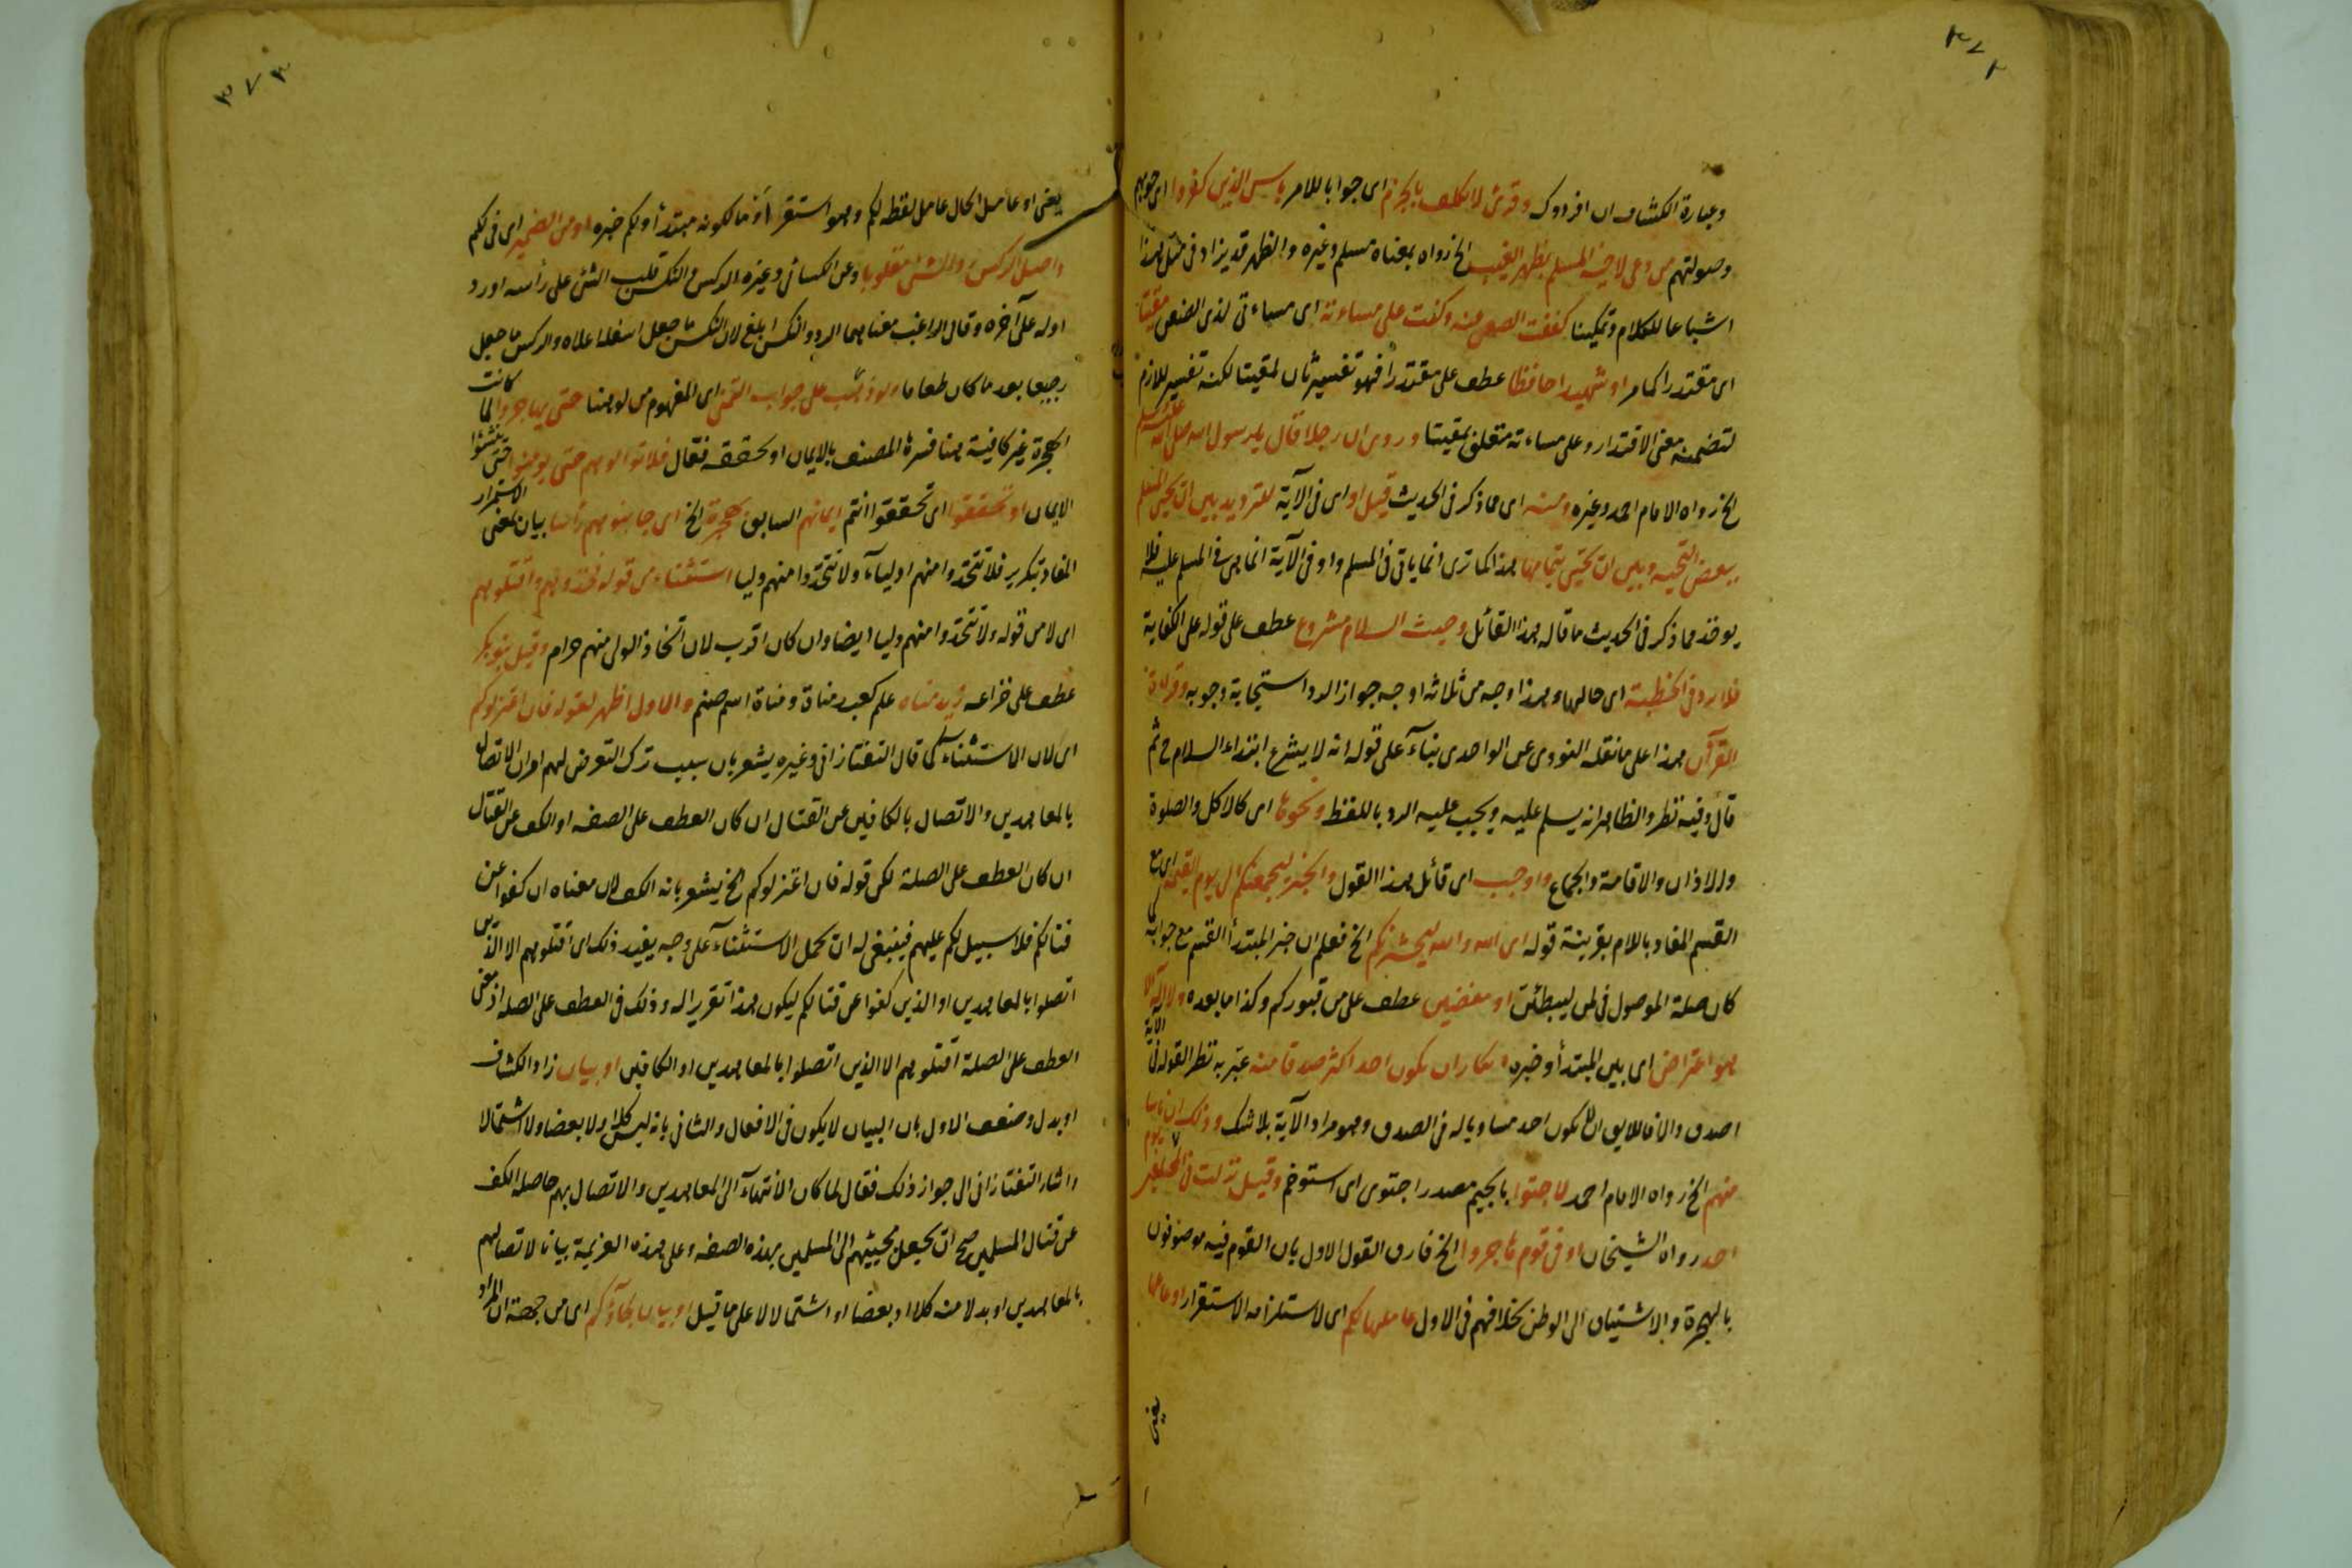 ٣٧٢
وعبارة الكشاف ان افردوك وقرئ لا تكلف بالجزم اى جوابا للامر باس الذين كفروا اى حربهم
وصولتهم من دعى لاخيه المسلم بظهر الغيب الخ رواه بمعناه مسلم وغيره والظهر قد يزاد فى مثل هذا
اشباعا للكلام وتمكينا كففت الضغن عنه وكنت على مساءته اى مساءتى لذى الضغن مقيتا
اى مقتدرا كما مر او شهيدا حافظا عطف على مقتدرا فهو تفسير ثان لمقيتا لكنه تفسير للازم
لتضمنه معنى الاقتدار وعلى مساءته متعلق بمقيتا وروى ان رجلا قال لرسول الله صلى الله عليه وسلم
الخ رواه الامام احمد وغيره ومنه اى مما ذكر فى الحديث قيل او اى فى الآية للترديد بين ان يحيى المسلم
ببعض التحية وبين ان يحيى بتمامها هذا كما ترى انما ياتى فى المسلم واو فى الآية انما هى فى المسلم عليه فلا
يوخذ مما ذكر فى الحديث ما قاله هذا القائل وحيث السلام مشروع عطف على قوله على الكفاية
فلا يرد فى الخطبة اى حالها وهذا وجه من ثلاثة اوجه جواز الرد واستحبابه ووجوبه وقراءة
القرآن هذا على ما نقله النووى عن الواحدى بناء على قوله انه لا يشرع ابتداء السلام ح ثم
قال وفيه نظر والظاهر انه يسلم عليه ويجب عليه الرد باللفظ ونحوها اى كالاكل والصلوة
والاذان والاقامة والجماع واوجب اى قائل هذا القول والخبر ليجمعنكم الى يوم القيمة اى مع
القسم المفاد باللام بقرينة قوله اى الله والله ليحشرنكم الخ فعلم ان خبر المبتدأ القسم مع جوابه كما
كان صلة الموصول فى لمن ليبطئن او مفضين عطف على من قبوركم وكذا ما بعده ولا اله الا
هو اعتراض اى بين المبتدأ وخبره انكار ان يكون احد اكثر صدقا منه عبّر به نظرا لقوله فى الآية
اصدق والا فاللايق ان لا يكون احد مساويا له فى الصدق وهو مراد الآية بلا شك وذلك ان ناسا
منهم الخ رواه الامام احمد لاجتوا بالجيم مصدر اجتوى اى استوخم وقيل نزلت فى المتخلفين يوم
احد رواه الشيخان او فى قوم هاجروا الخ فارق القول الاول بان القوم فيه موصوفون
بالهجرة والاشتياق الى الوطن بخلافهم فى الاول عاملها لكم اى لاستلزامه الاستقرار او عاملها
يعنى
٣٧٣
يعنى او عامل الحال عامل لفظه لكم وهو استقر اذ مالكونه مبتدأ ولكم خبره او من الضمير اى فى لكم
واصل الركس رد الشئ مقلوبا وعن الكسائى وغيره الركس والنكس قلب الشئ على رأسه او رد
اوله على آخره وقال الراغب معناهما الرد والنكس ابلغ لان النكس ما جعل اسفله اعلاه والركس ما جعل
رجيعا بعد ما كان طعاما ولو نصب على جواب التمنى اى المفهوم من لو هنا حتى يهاجروا لما كانت
الهجرة غير كافية هنا فسره المصنف بالايمان او بحققه فقال فلا توالوهم حتى يومنوا حتى ينشئوا
الايمان او تحققوا اى تحققوا انتم ايمانهم السابق بهجرة الخ اى جانبوهم رأسا بيان لمعنى الاستمرار
المفاد بتكرير فلا تتخذوا منهم اولياء ولا تتخذوا منهم وليا استثناء من قوله فخذوهم واقتلوهم
اى لا من قوله ولا تتخذوا منهم وليا ايضا وان كان اقرب لان اتخاذ الولى منهم حرام وقيل بنو بكر
عطف على خزاعه زيد مناه علم كعبد مناة ومناة اسم صنم والاول اظهر لقوله فان اعتزلوكم
اى لان الاستثناء كما قال التفتازانى وغيره يشعر بان سبب ترك التعرض لهم امران الاتصال
بالمعاهدين والاتصال بالكافين عن القتال ان كان العطف على الصفه او الكف عن القتال
ان كان العطف على الصلة لكن قوله فان اعتزلوكم الخ يشعر بانه الكف لان معناه ان كفوا عن
قتالكم فلا سبيل لكم عليهم فينبغى له ان يحمل الاستثناء على وجه يفيد ذلك اى اقتلوهم الا الذين
اتصلوا بالمعاهدين او الذين كفوا عن قتالكم ليكون هذا تقريرا له وذلك فى العطف على الصلة اذ معنى
العطف على الصلة اقتلوهم الا الذين اتصلوا بالمعاهدين او الكافين او بيان زاد الكشاف
او بدل وضعف الاول بان البيان لا يكون فى الافعال والثانى بانه ليس كلا ولا بعضا ولا اشتمالا
واشار التفتازانى الى جواز ذلك فقال لما كان الانتهاء الى المعاهدين والاتصال بهم حاصله الكف
عن قتال المسلمين صح ان يجعل مجيئهم الى المسلمين بهذه الصفه وعلى هذه العزيمة بيانا لاتصالهم
بالمعاهدين او بدلا منه كلا او بعضا او اشتمالا لا على ما قيل او بيان لجاؤكم اى من جهة ان المراد